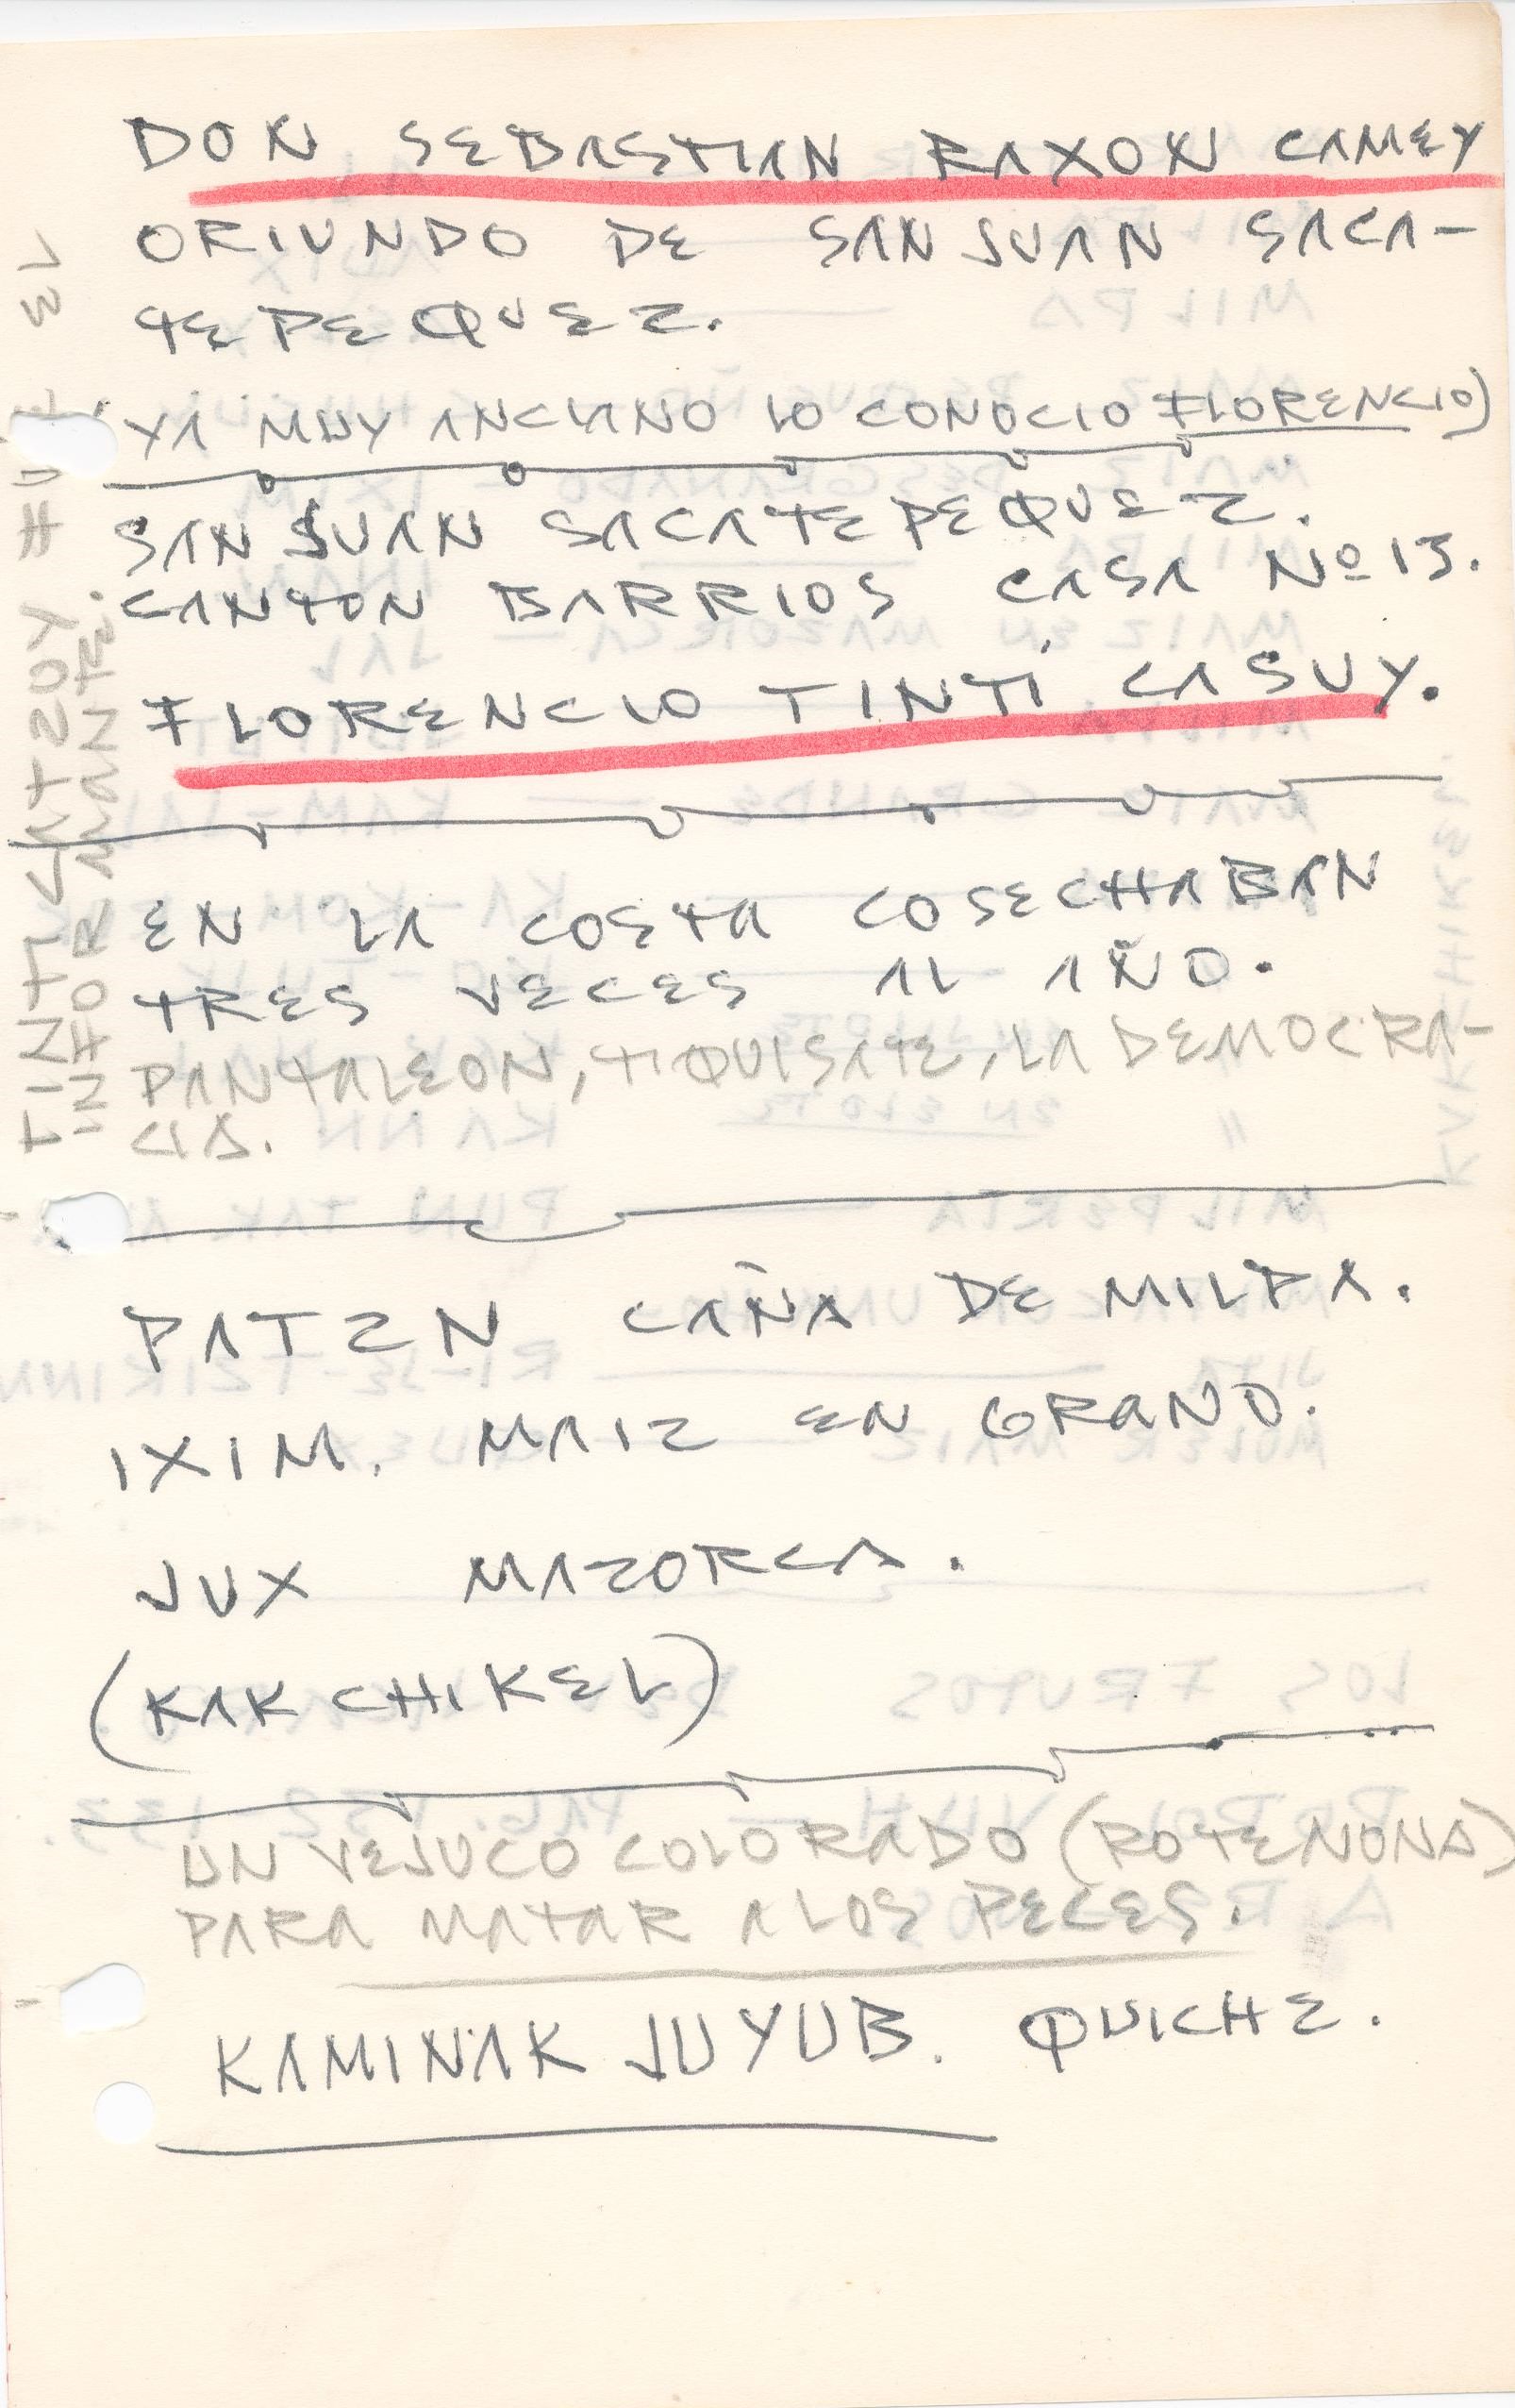 DON SEBASTIAN RAXON CAMEY
ORIUNDO DE SAN JUAN SACA-
TEPEQUEZ.
(YA MUY ANCIANO LO CONOCIO FLORENCIO)
SAN JUAN SACATEPEQUEZ.
CANTON BARRIOS CASA Nº 13.
FLORENCIO TINTÍ CASUY.
EN LA COSTA COSECHABAN
TRES VECES AL AÑO.
PANTALEON, TIQUISATE, LA DEMOCRA-
CIA.
PATZN CAÑA DE MILPA.
IXIM. MAIZ EN GRANO.
JUX MAZORCA.
(KAKCHIKEL)
UN VEJUCO COLORADO (ROTENONA)
PARA MATAR A LOS PECES.
KAMINAK JUYUB. QUICHE.
TINTI CATZOY FUE EL
INFORMANTE.